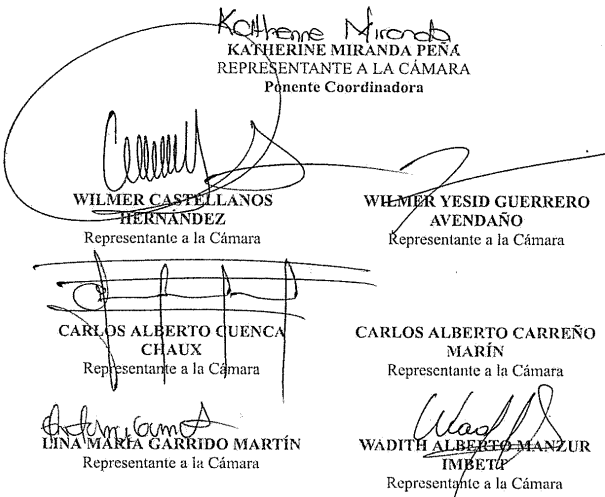 Katherine Miranda
KATHERINE MIRANDA PEÑA
REPRESENTANTE A LA CÁMARA
Ponente Coordinadora
WILMER CASTELLANOS
HERNÁNDEZ
Representante a la Cámara
WILMER YESID GUERRERO
AVENDAÑO
Representante a la Cámara
CARLOS ALBERTO CUENCA
CHAUX
Representante a la Cámara
CARLOS ALBERTO CARREÑO
MARÍN
Representante a la Cámara
LINA MARÍA GARRIDO MARTÍN
Representante a la Cámara
WADITH ALBERTO MANZUR
IMBETT
Representante a la Cámara